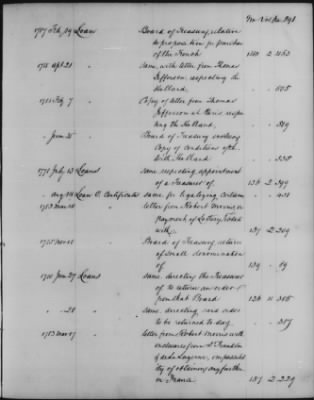 No Vol Pa 391
1787 Feb 19 Loan Board of Treasury, relation
to proposition for purchase
of the French 140 2 1153
1788 Apl 21 " same, with letter from Thomas
Jefferson respecting the
Holland. " - 505
1788 Feb 7 " Copy of letter from Thomas
Jefferson at Paris respec
ting the Holland, " - 389
" Jan 25 " Board of Treasury enclosing
Copy of conditions of the
with Holland " - 335
1778 July 13 Loans same, respecting appointment
of a Treasurer of. 136 2 399
" Aug 24 Loan O. Certificates same, for legalizing certain " - 401
1783 Mar 10 " letter from Robert Morris on
payment of Lottery Tickets
with 137 2 209
1785 Nov 22 " Board of Treasury, return
of small denomination
of 139 - 89
1780 Jan 27 Loans same, directing the Treasurer
of to return an order
upon that Board 136 4 305
" " 28 " same, directing said order
to be returned to day. " - 307
1783 Mar 17 " letter from Robert Morris with
enclosures from Dr Franklin
& de la Luzerne, impossibili
ty of obtaining any further
in France 137 2 229